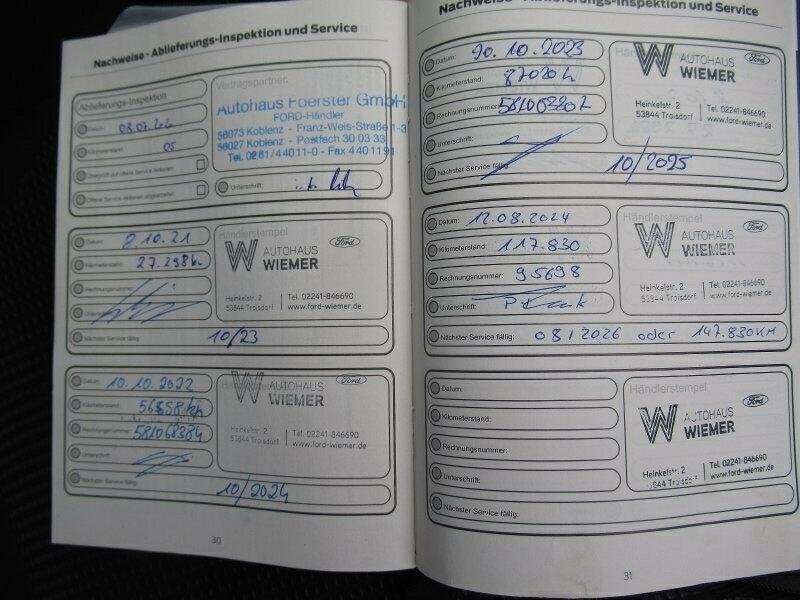 Nachweise - Ablieferungs-Inspektion und Service
Ablieferungs-Inspektion
Datum:
Kilometerstand: 05
Überprüft auf offene Service Aktionen:
Offene Service Aktionen abgearbeitet:
Vertragspartner:
Autohaus Foerster GmbH
FORD-Händler
56073 Koblenz - Franz-Weis-Straße 1-3
56027 Koblenz - Postfach 30 03 33
Tel. 0261/44011-0 - Fax 4401191
Unterschrift:
Datum: 8.10.21
Kilometerstand: 27.298 km
Rechnungsnummer:
Unterschrift:
Händlerstempel
W AUTOHAUS WIEMER
Ford
Heinkelstr. 2
53844 Troisdorf
Tel. 02241-846690
www.ford-wiemer.de
Nächster Service fällig: 10/23
Datum: 10.10.2022
Kilometerstand: 56858 km
Rechnungsnummer: 581068384
Unterschrift:
Händlerstempel
W AUTOHAUS WIEMER
Ford
Heinkelstr. 2
53844 Troisdorf
Tel. 02241-846690
www.ford-wiemer.de
Nächster Service fällig: 10/2024
30
Nachweise - Ablieferungs-Inspektion und Service
Datum: 20.10.2023
Kilometerstand:
Rechnungsnummer:
Unterschrift:
W AUTOHAUS WIEMER
Ford
Heinkelstr. 2
53844 Troisdorf
Tel. 02241-846690
www.ford-wiemer.de
Nächster Service fällig: 10/2025
Datum: 12.08.2024
Kilometerstand: 117.830
Rechnungsnummer: 95698
Unterschrift:
Händlerstempel
W AUTOHAUS WIEMER
Ford
Heinkelstr. 2
53844 Troisdorf
Tel. 02241-846690
www.ford-wiemer.de
Nächster Service fällig: 08/2026 oder 147.830KM
Datum:
Kilometerstand:
Rechnungsnummer:
Unterschrift:
Händlerstempel
W AUTOHAUS WIEMER
Ford
Heinkelstr. 2
53844 Troisdorf
Tel. 02241-846690
www.ford-wiemer.de
Nächster Service fällig:
31